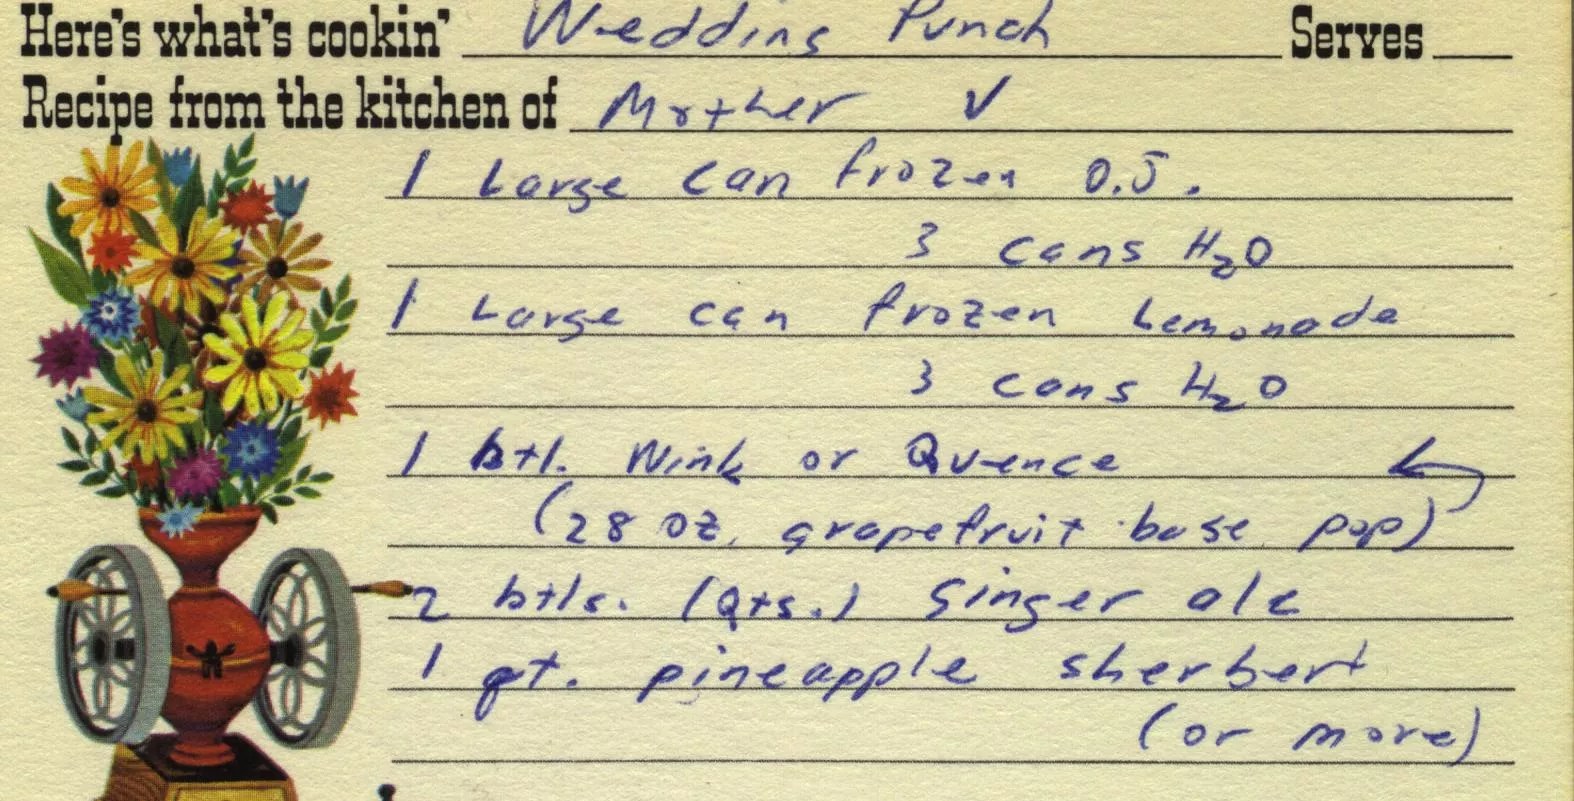 Here's what's cookin' Wedding Punch Serves
Recipe from the kitchen of Mother V
1 Large can frozen O.J.
3 cans H₂O
1 Large can frozen Lemonade
3 cans H₂O
1 btl. Wink or Quence
(28 oz. grapefruit base pop)
2 btls. (Qts.) Ginger ale
1 qt. pineapple sherbert
(or more)